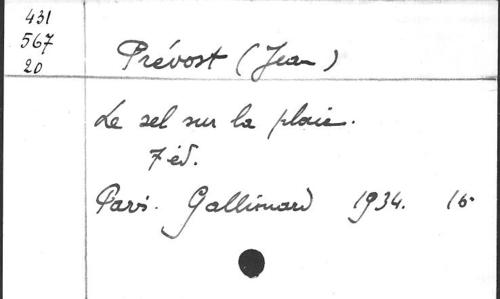 431
567
20
Prévost (Jean)
Le sel sur la plaie.
7 éd.
Paris. Gallimard 1934. 16°